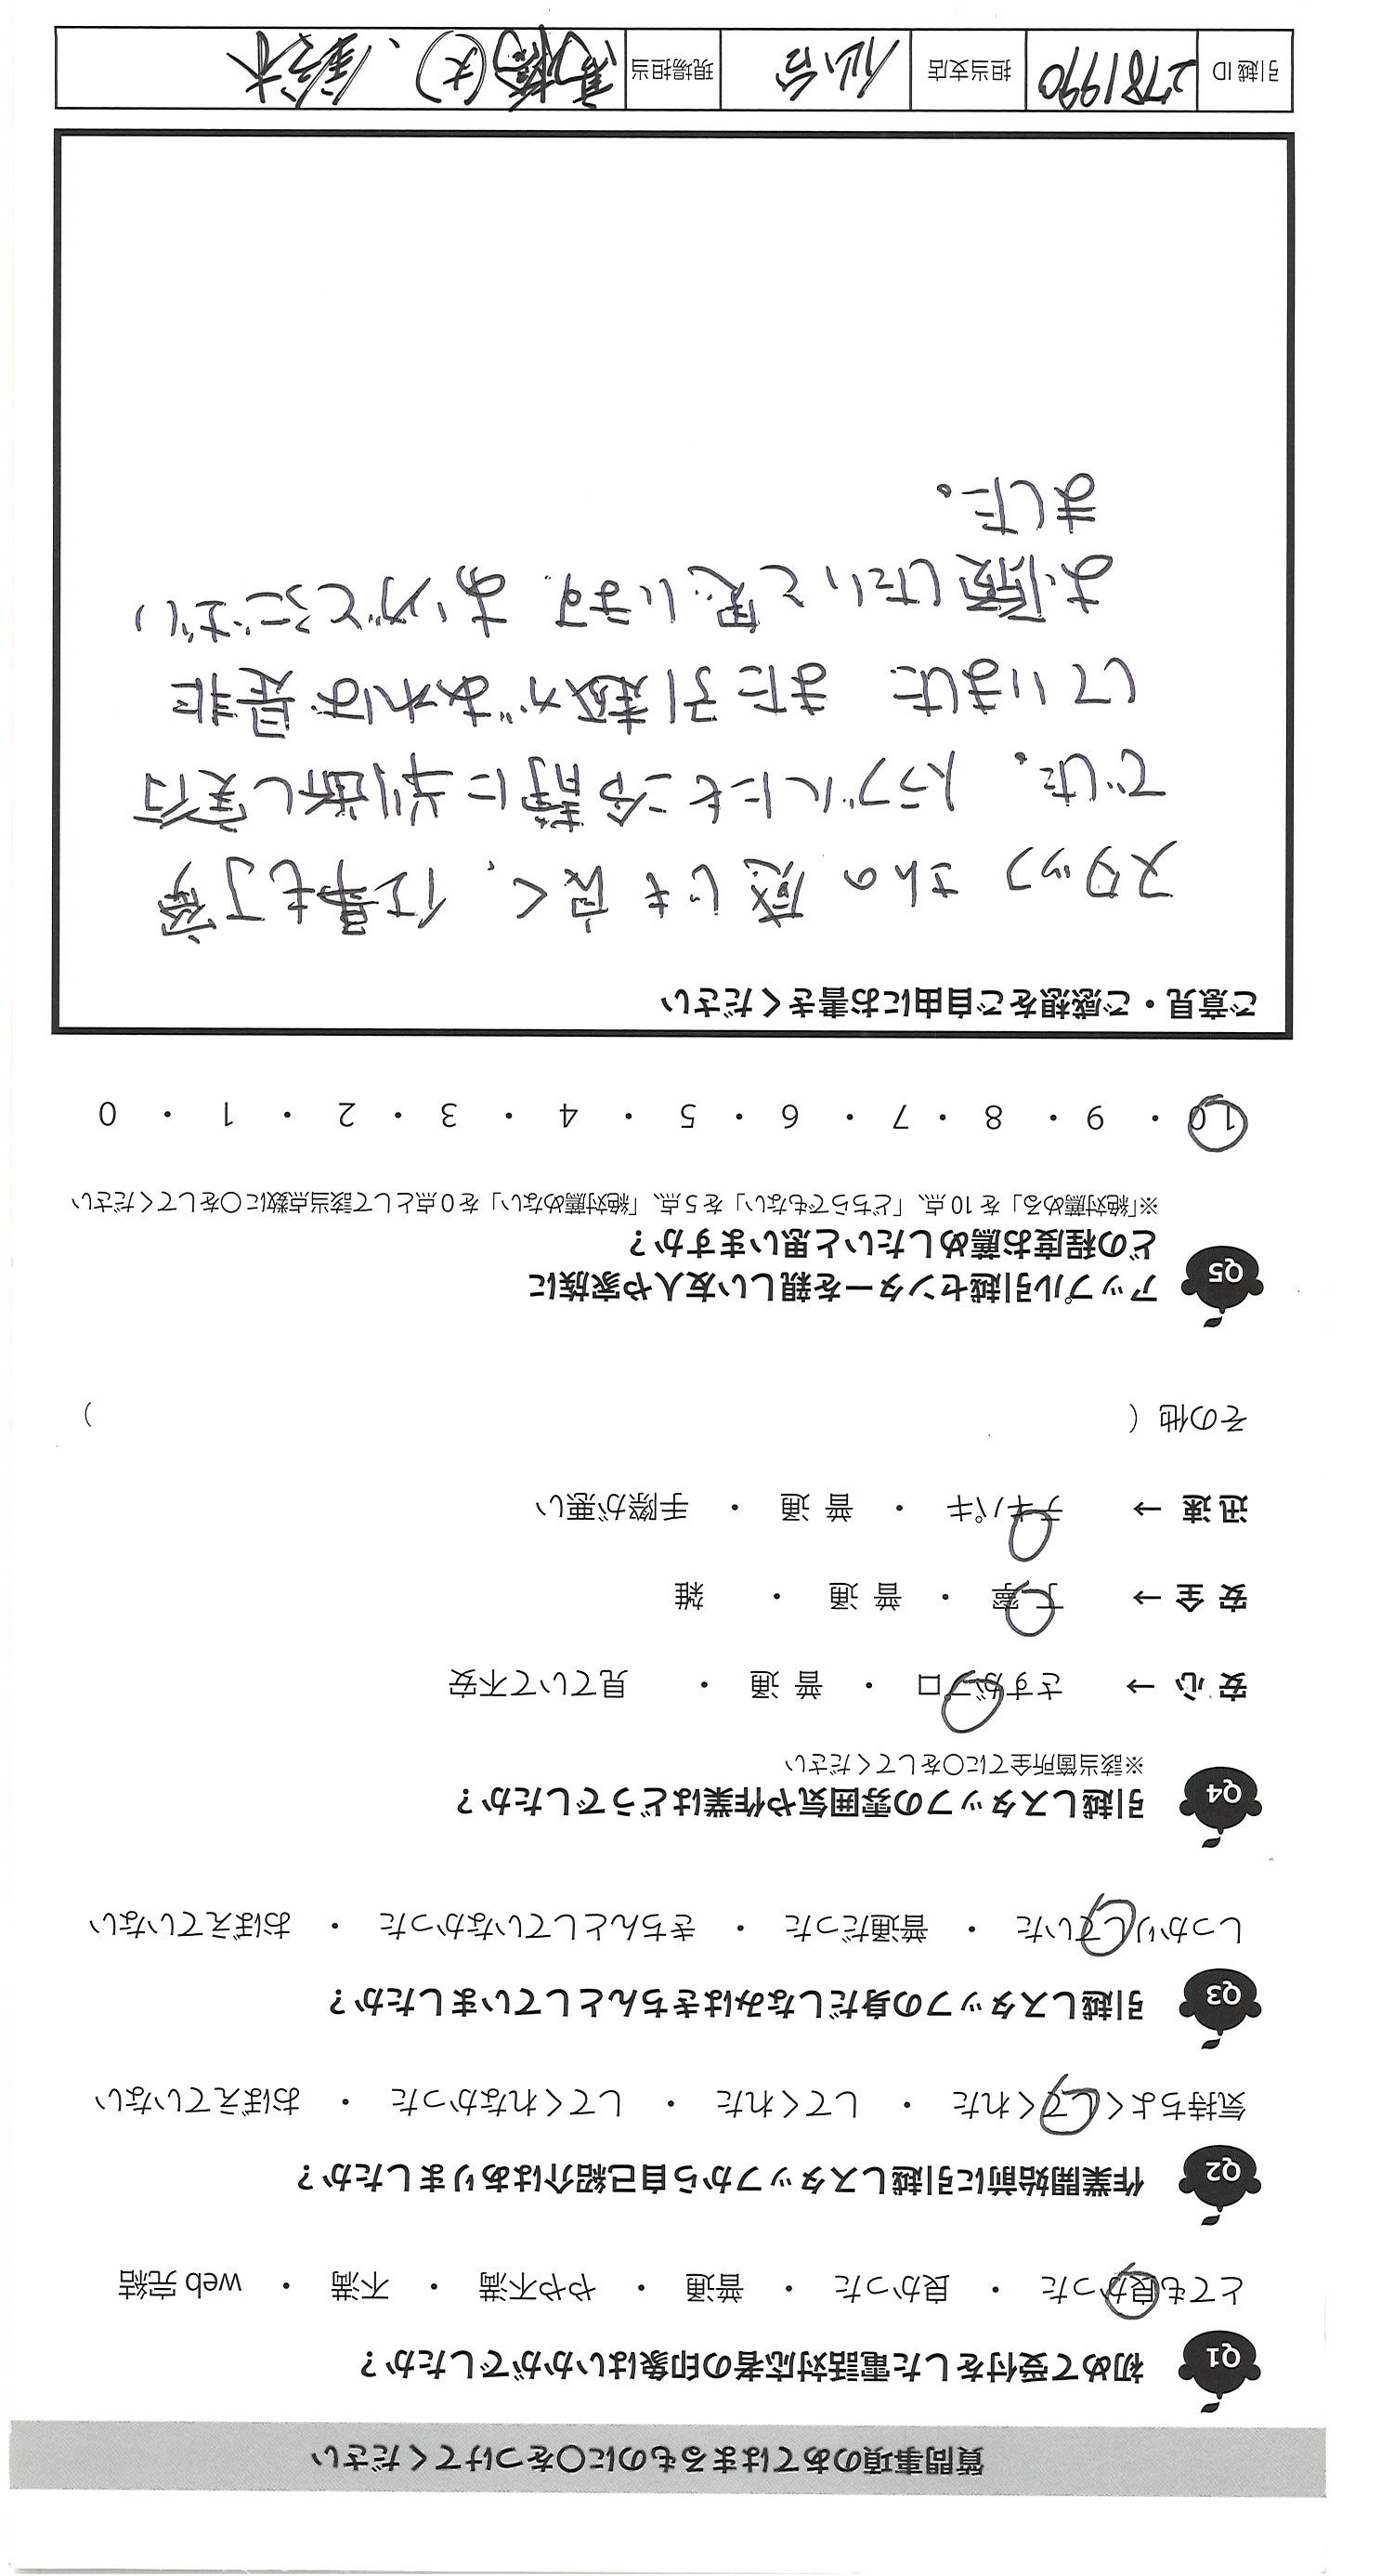 質問事項のあてはまるものに〇をつけてください
Q1 初めて受付をした電話対応者の印象はいかがでしたか？
とても良かった ・ 良かった ・ 普通 ・ やや不満 ・ 不満 ・ web 完結
Q2 作業開始前に引越しスタッフから自己紹介はありましたか？
気持ちよくしてくれた ・ してくれた ・ してくれなかった ・ おぼえていない
Q3 引越しスタッフの身だしなみはきちんとしていましたか？
しっかりしていた ・ 普通だった ・ きちんとしていなかった ・ おぼえていない
Q4 引越しスタッフの雰囲気や作業はどうでしたか？
※該当箇所全てに〇をしてください
安 心 → さすがプロ ・ 普 通 ・ 見ていて不安
安 全 → 丁寧 ・ 普 通 ・ 雑
迅 速 → テキパキ ・ 普 通 ・ 手際が悪い
その他（ ）
Q5 アップル引越センターを親しい友人や家族に
どの程度お薦めしたいと思いますか？
※「絶対薦める」を 10 点、「どちらでもない」を 5 点、「絶対薦めない」を 0 点として該当点数に〇をしてください
10 ・ 9 ・ 8 ・ 7 ・ 6 ・ 5 ・ 4 ・ 3 ・ 2 ・ 1 ・ 0
ご意見・ご感想をご自由にお書きください
スタッフさんの感じも良く、仕事も丁寧
でした。トラブルにも冷静に判断し実行
していました また引越があれば是非
お願したいと思います ありがとうござい
ました。
引越 ID 2781990 担当支店 仙台 現場担当 高橋(大)、鈴木